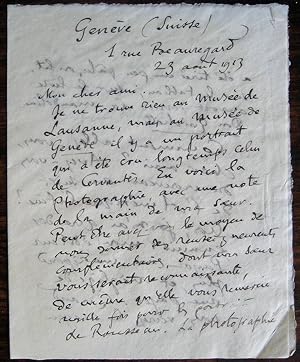 Genève (Suisse)
1 rue Beauregard
23 août 1913
Mon cher ami.
Je ne trouve rien au musée de
Lausanne, mais au musée de
Genève il y a un portrait
qui a été cru longtemps celui
de Cervantès. En voici la
Photographie, avec une note
de la main de ma sœur.
Peut être avez le moyen de
nous donner des renseignements
complémentaires, dont ma sœur
vous serait reconnaissante,
de même qu'elle vous remercie
mille fois pour
de Rousseau. La photographie